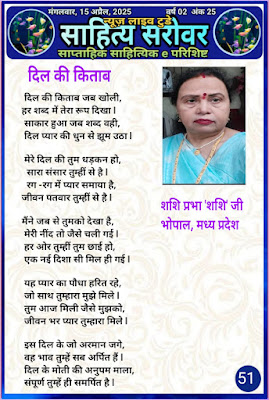 मंगलवार, 15 अप्रैल, 2025 वर्ष 02 अंक 25
न्यूज़ लाइव टुडे
साहित्य सरोवर
साप्ताहिक साहित्यिक e परिशिष्ट
दिल की किताब
दिल की किताब जब खोली,
हर शब्द में तेरा रूप दिखा ।
साकार हुआ जब शब्द वही,
दिल प्यार की धुन से झूम उठा ।
मेरे दिल की तुम धड़कन हो,
सारा संसार तुम्हीं से है ।
रग -रग में प्यार समाया है,
जीवन पतवार तुम्हीं से है ।
मैंने जब से तुमको देखा है,
मेरी नींद तो जैसे चली गई ।
हर ओर तुम्हीं तुम छाई हो,
एक नई दिशा सी मिल ही गई ।
यह प्यार का पौधा हरित रहे,
जो साथ तुम्हारा मुझे मिले ।
तुम आज मिली जैसे मुझको,
जीवन भर प्यार तुम्हारा मिले ।
इस दिल के जो अरमान जगे,
वह भाव तुम्हें सब अर्पित हैं ।
दिल के मोती की अनुपम माला,
संपूर्ण तुम्हें ही समर्पित है ।
शशि प्रभा 'शशि' जी
भोपाल, मध्य प्रदेश
51